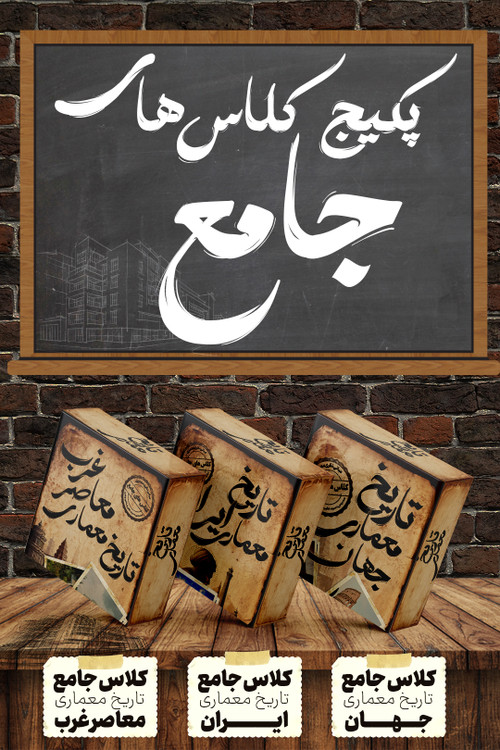 پکیج کلاس های
جامع
تاریخ
معماری
جهان
تاریخ
معماری
ایران
غرب
معاصر
تاریخ معماری
کلاس جامع
تاریخ معماری
جهان
کلاس جامع
تاریخ معماری
ایران
کلاس جامع
تاریخ معماری
معاصر غرب